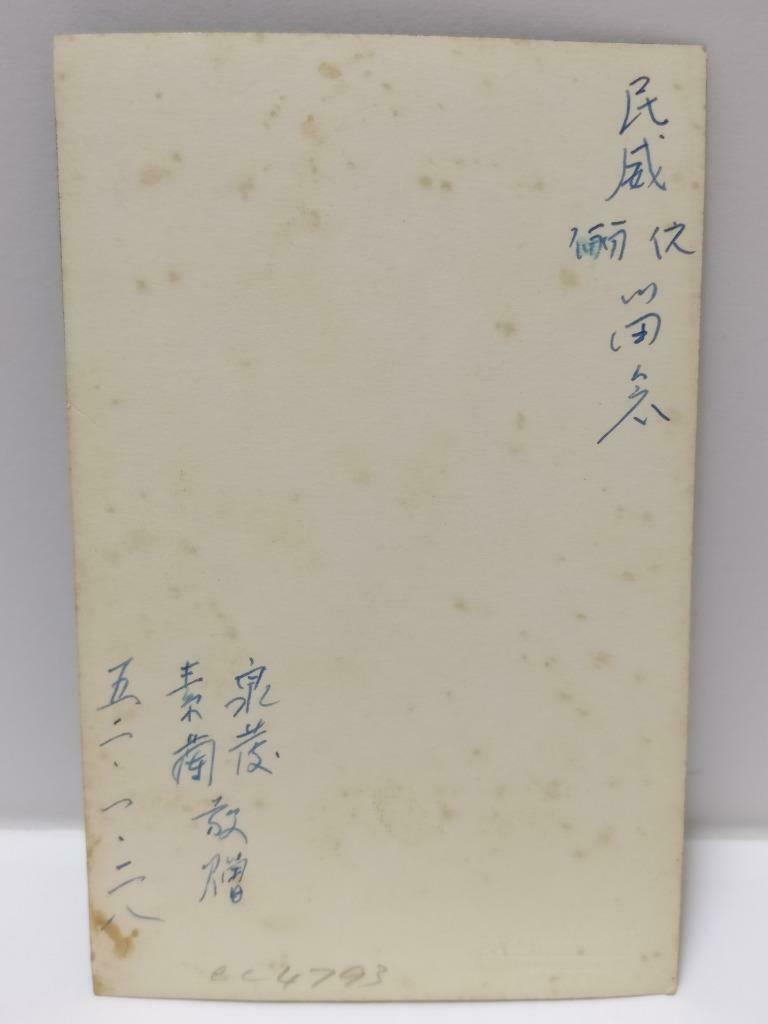 民威
伉儷
留念
泉茂
素蘭
敬贈
五二.一.二八
CC4793